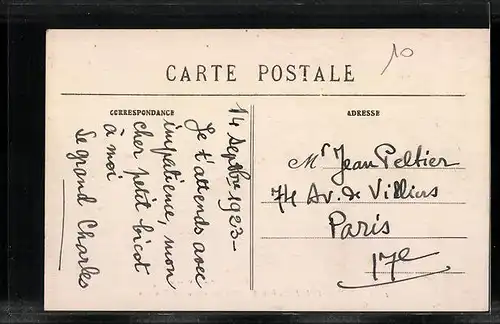 10
CARTE POSTALE
CORRESPONDANCE
14 Septbre 1923-
Je t'attends avec
impatience, mon
cher petit bicot
à moi
Le grand Charles
ADRESSE
Mr Jean Peltier
74 Av. de Villiers
Paris
17e